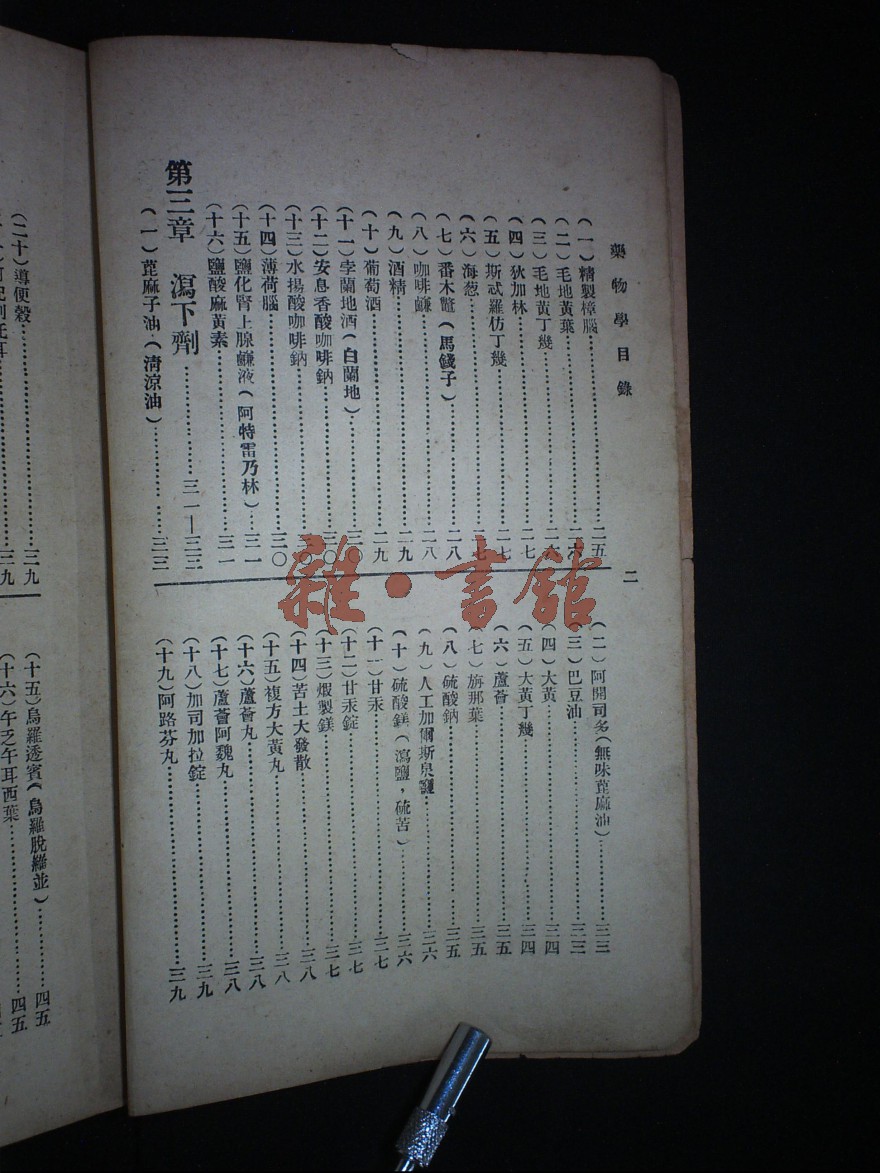 藥物學目錄
二
(一)精製樟腦……二五
(二)毛地黃葉……二六
(三)毛地黃丁幾……二六
(四)狄加林……二七
(五)斯忒羅仿丁幾……二七
(六)海葱……二七
(七)番木鼈(馬錢子)……二八
(八)咖啡鹻……二八
(九)酒精……二九
(十)葡萄酒……二九
(十一)孛蘭地酒(白蘭地)……三〇
(十二)安息香酸咖啡鈉……三〇
(十三)水揚酸咖啡鈉……三〇
(十四)薄荷腦……三〇
(十五)鹽化腎上腺鹻液(阿特雷乃林)……三一
(十六)鹽酸麻黃素……三一
第三章 瀉下劑……三一—三三
(一)蓖麻子油(淸涼油)……三三
(二)阿開司多(無味蓖麻油)……三三
(三)巴豆油……三三
(四)大黃……三四
(五)大黃丁幾……三四
(六)蘆薈……三五
(七)旃那葉……三五
(八)硫酸鈉……三五
(九)人工加爾斯泉鹽……三六
(十)硫酸鎂(瀉鹽，硫苦)……三六
(十一)甘汞……三七
(十二)甘汞錠……三七
(十三)煆製鎂……三七
(十四)苦土大發散……三八
(十五)複方大黃丸……三八
(十六)蘆薈丸……三八
(十七)蘆薈阿魏丸……三八
(十八)加司加拉錠……三九
(十九)阿路芬丸……三九
(二十)導便穀……三九
(十五)烏羅透賓(烏羅脫羅並)……四五
(十六)午乏午耳西葉……四五
雜·書館